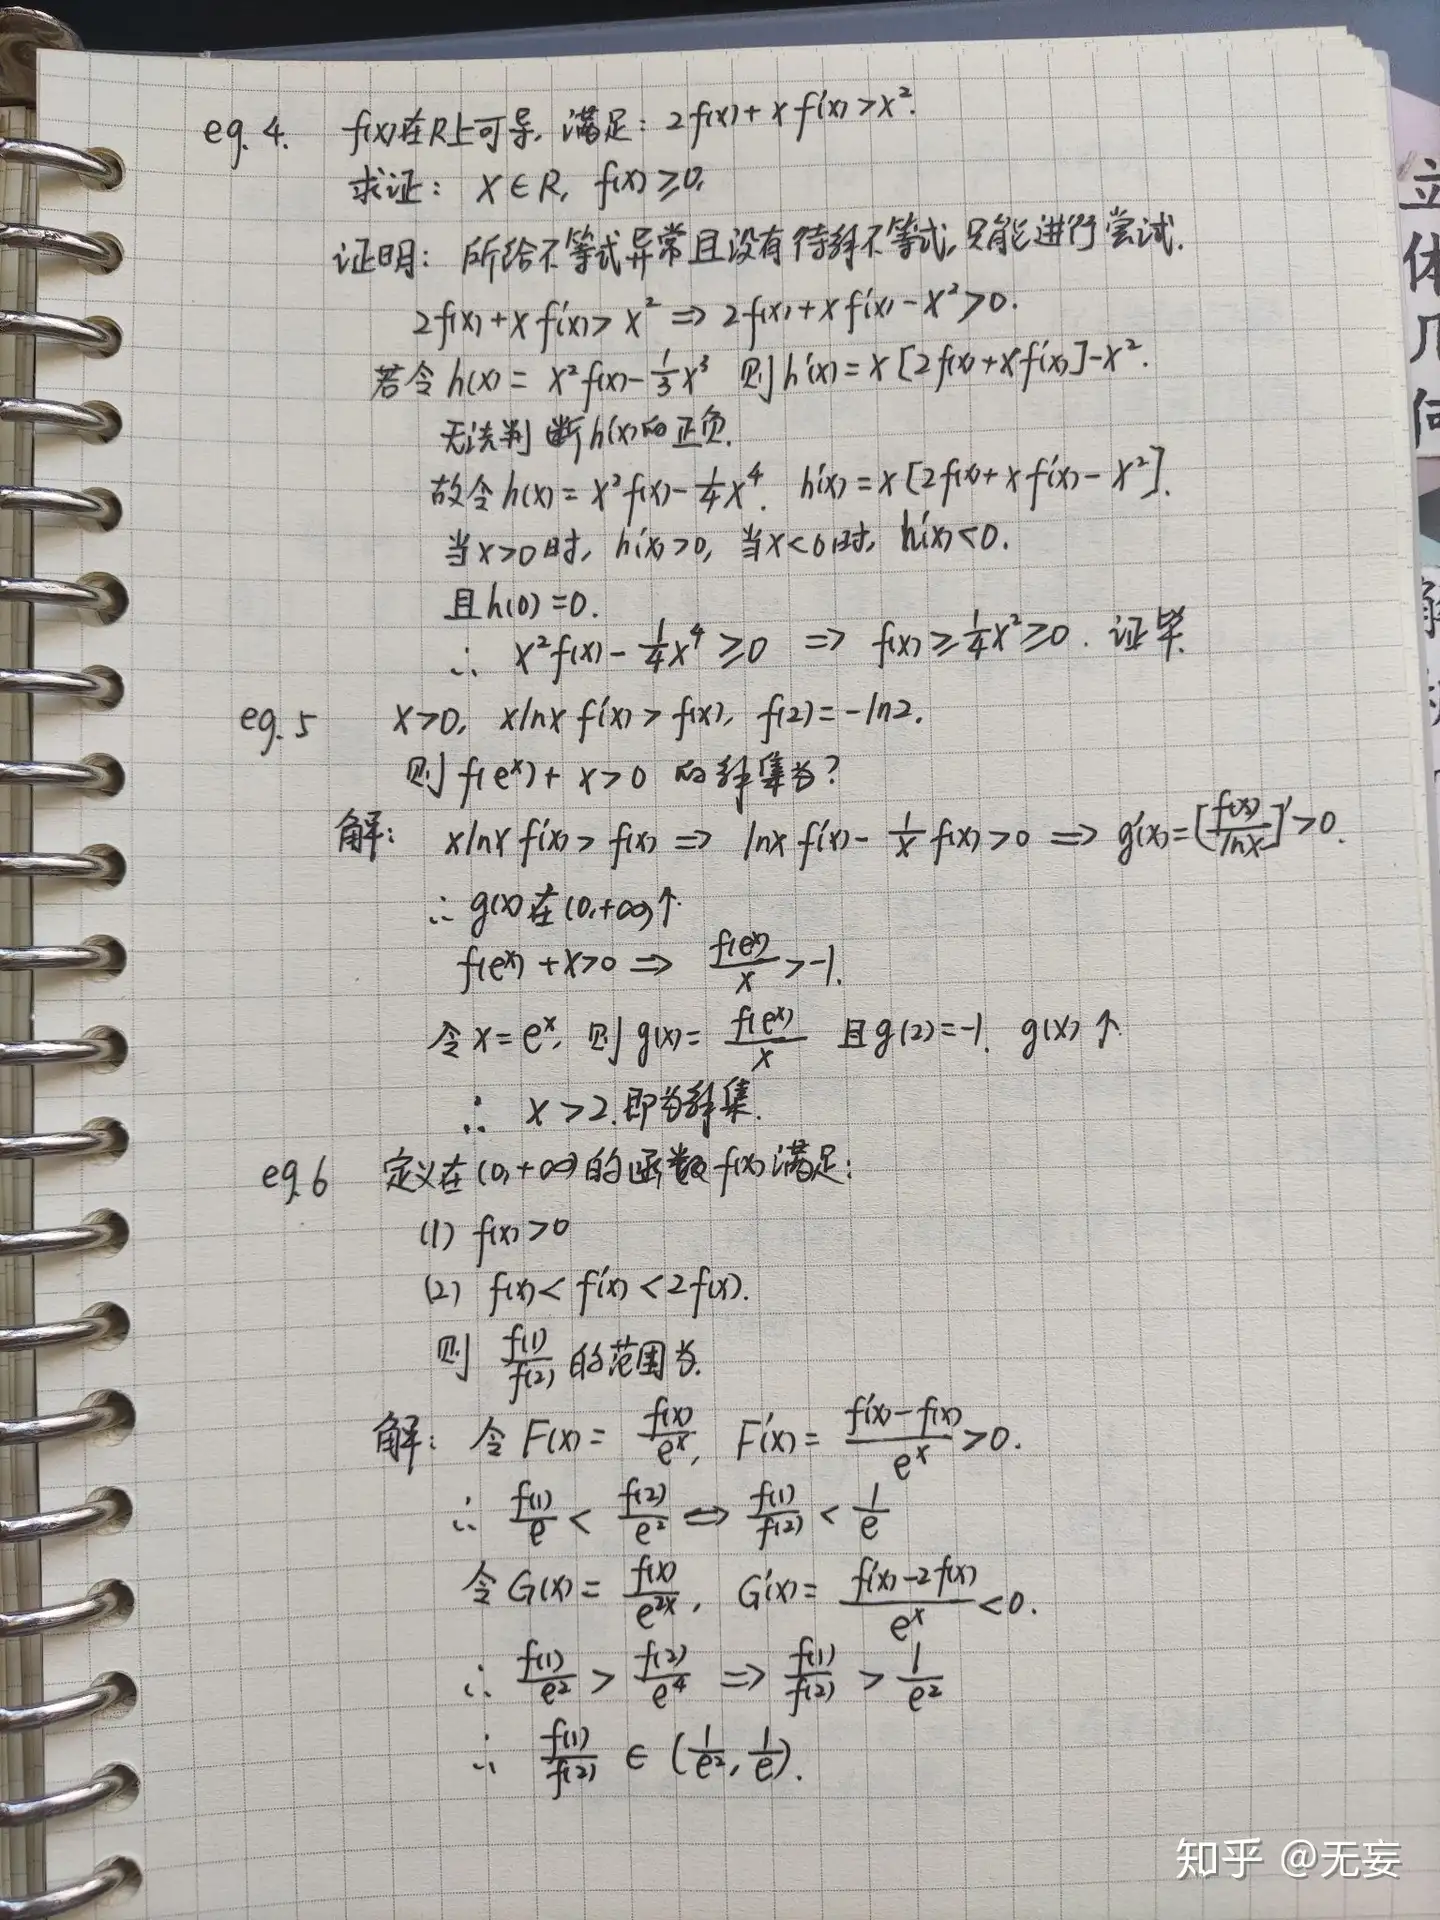 eg.4. f(x)在R上可导,满足: 2f(x)+xf'(x)>x².
求证: x∈R, f(x)≥0,
证明: 所给不等式异常且没有待解不等式,只能进行尝试.
2f(x)+xf'(x)>x² ⇒ 2f(x)+xf'(x)-x²>0.
若令h(x)= x²f(x)-1/3x³ 则h'(x)=x[2f(x)+xf'(x)]-x².
无法判断h'(x)的正负.
故令h(x)=x²f(x)-1/4x⁴. h'(x)=x[2f(x)+xf'(x)-x²].
当x>0时, h'(x)>0, 当x<0时, h'(x)<0.
且h(0)=0.
∴ x²f(x)-1/4x⁴≥0 ⇒ f(x)≥1/4x²≥0. 证毕.
eg.5 x>0, xlnxf'(x)>f(x), f(2)=-ln2.
则f(eˣ)+x>0的解集为?
解: xlnxf'(x)>f(x) ⇒ lnxf'(x)-1/xf(x)>0 ⇒ g'(x)=[f(x)/lnx]'>0.
∴ g(x)在(0,+∞)↑.
f(eˣ)+x>0 ⇒ f(eˣ)/x>-1.
令x=eˣ, 则g(x)=f(eˣ)/x 且g(2)=-1. g(x)↑.
∴ x>2.即为解集.
eg.6 定义在(0,+∞)的函数f(x)满足:
(1) f(x)>0
(2) f(x)<f'(x)<2f(x).
则 f(1)/f(2) 的范围为.
解: 令F(x)=f(x)/eˣ, F'(x)=f'(x)-f(x)/eˣ>0.
∴ f(1)/e<f(2)/e² ⇔ f(1)/f(2)<1/e
令G(x)=f(x)/e²ˣ, G'(x)=f'(x)-2f(x)/eˣ<0.
∴ f(1)/e²>f(2)/e⁴ ⇒ f(1)/f(2)>1/e²
∴ f(1)/f(2)∈(1/e²,1/e).
立体几何
知乎 @无妄